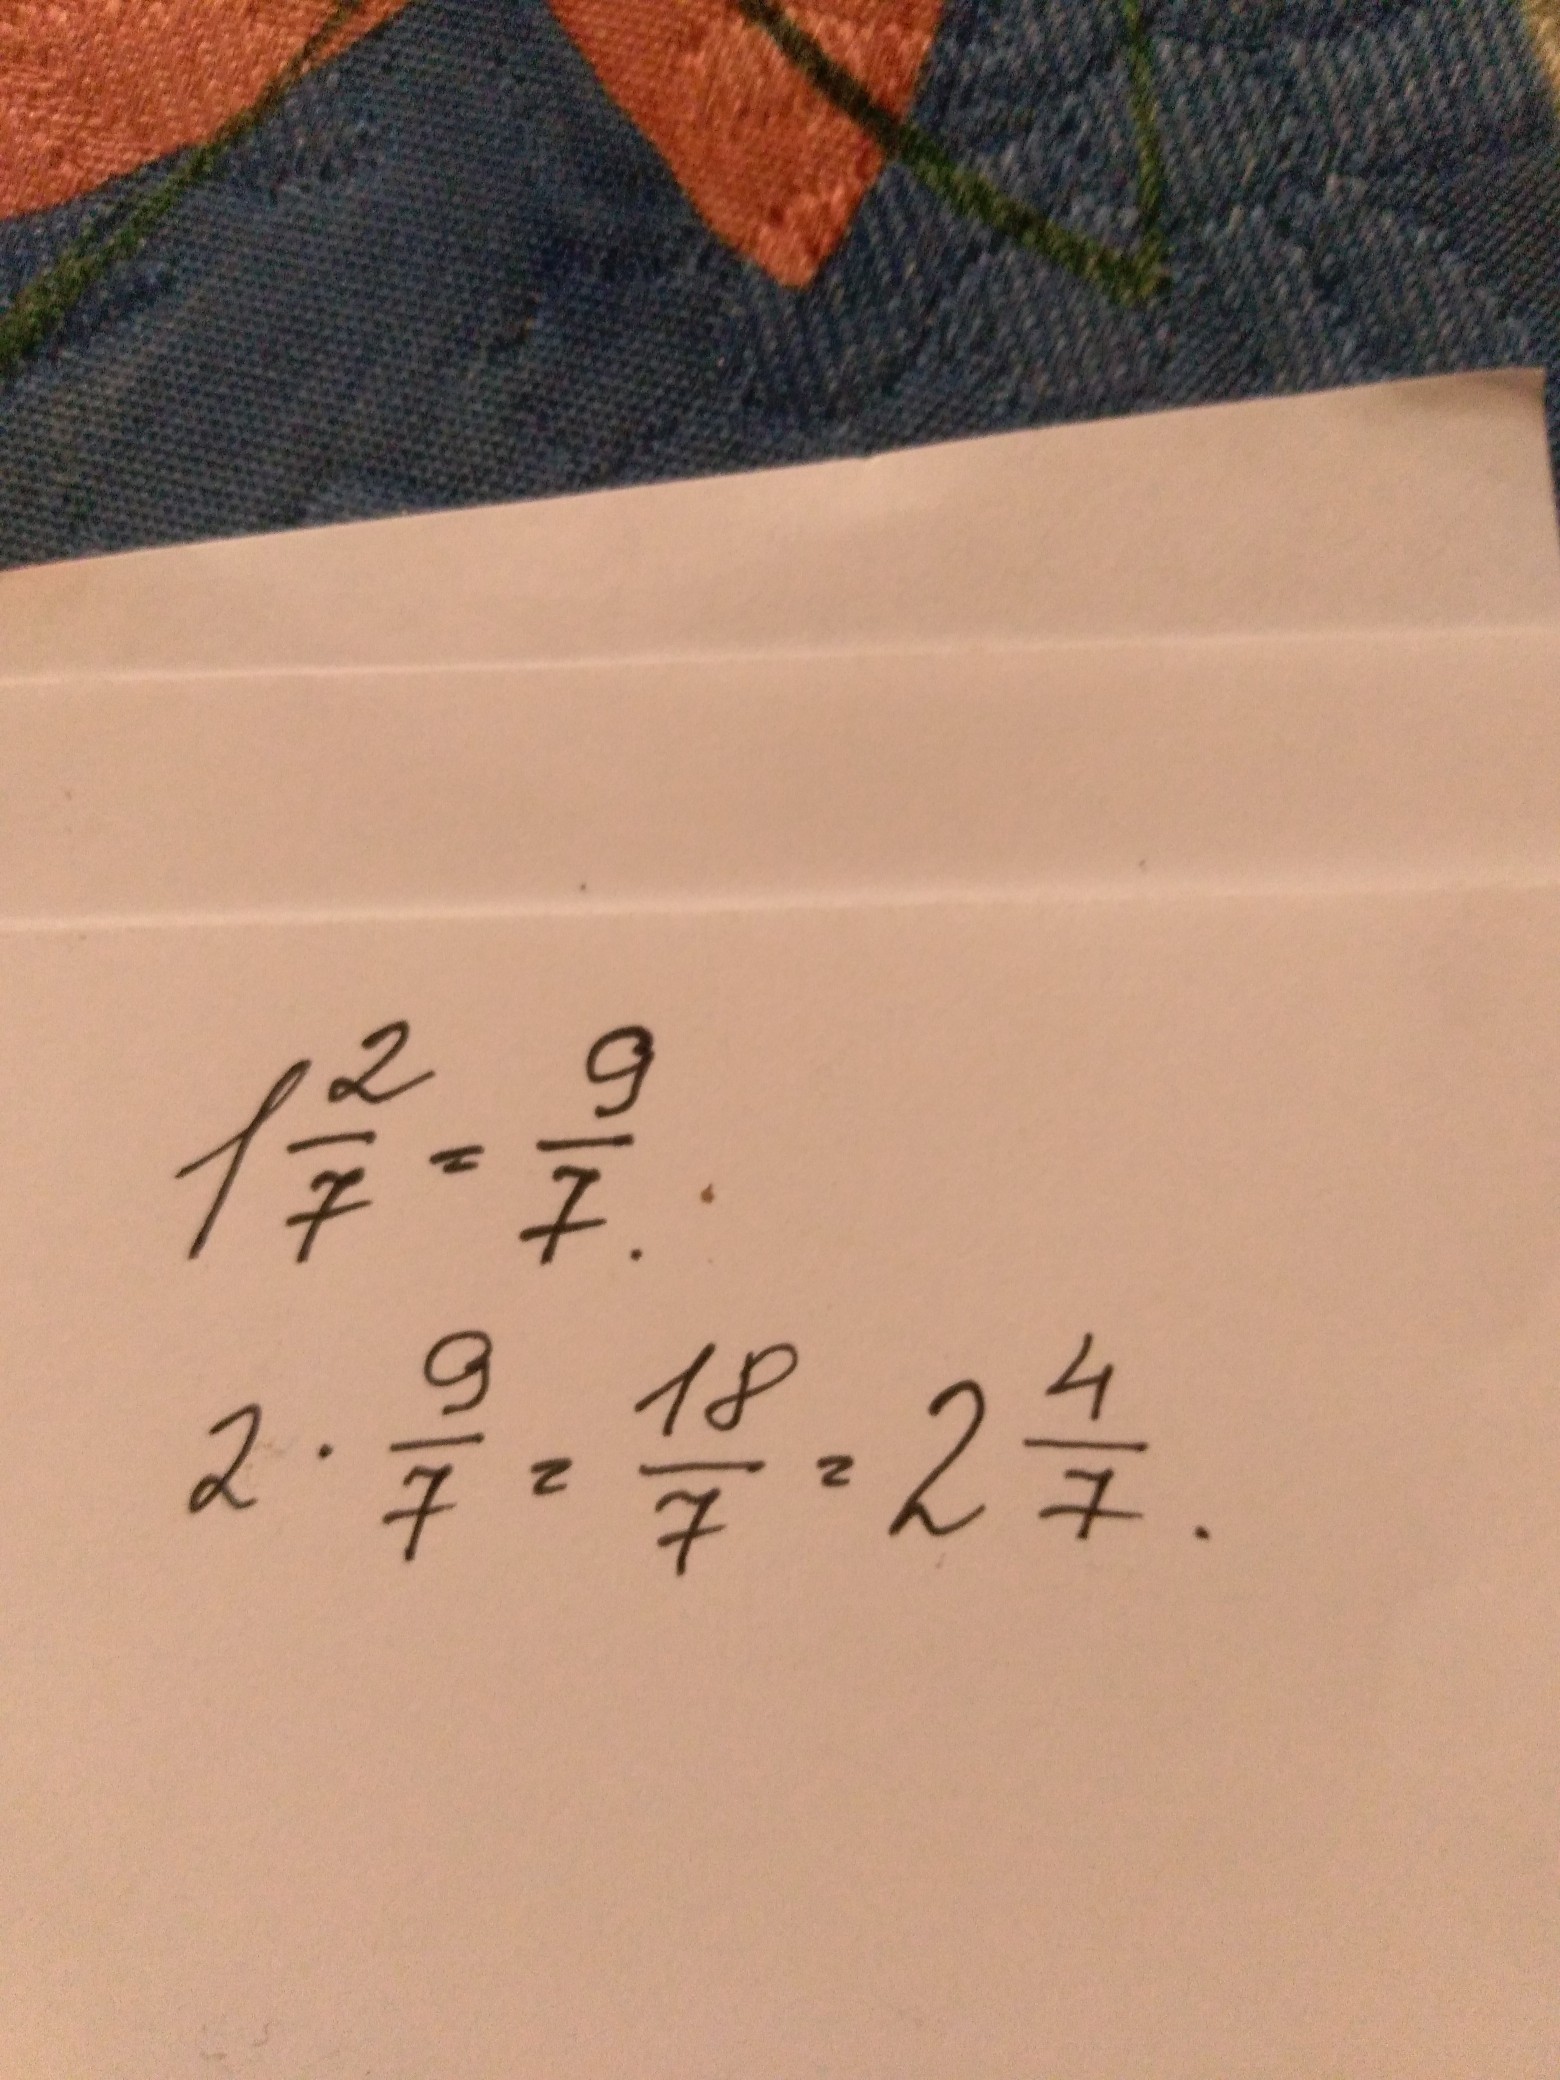 1 2/7 = 9/7.
2 · 9/7 = 18/7 = 2 4/7.